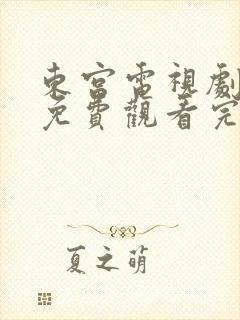 東宮電視劇
免費觀看完
夏之萌